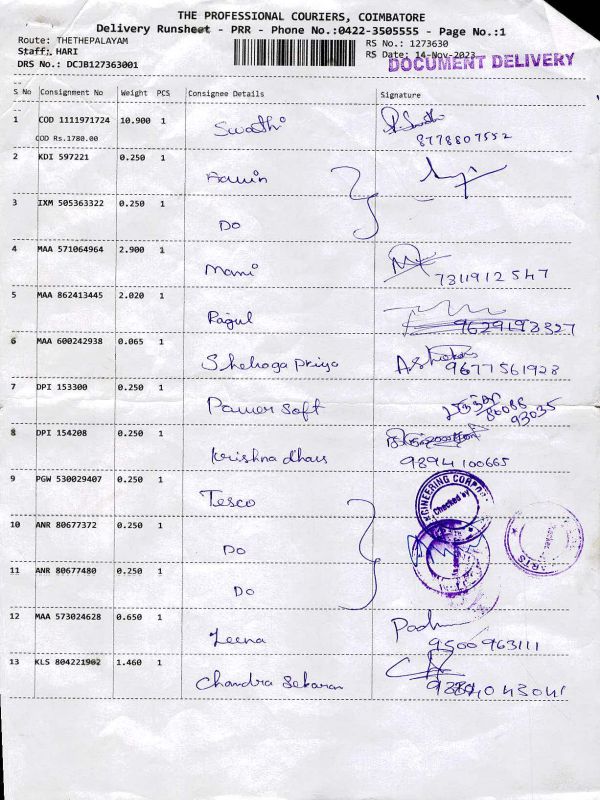 THE PROFESSIONAL COURIERS, COIMBATORE
Delivery Runsheet - PRR - Phone No.:0422-3505555 - Page No.:1
Route: THETHEPALAYAM
RS No.: 1273630
Staff: HARI
RS Date: 14-Nov-2023
DRS No.: DCJB127363001
DOCUMENT DELIVERY
S No Consignment No Weight PCS Consignee Details Signature
1 COD 1111971724 10.900 1 Swathi
COD Rs.1780.00
8778807552
2 KDI 597221 0.250 1
3 IXM 505363322 0.250 1 Do
4 MAA 571064964 2.900 1 Mani
7811912547
5 MAA 862413445 2.020 1 Ragul
9629198327
6 MAA 600242938 0.065 1 Shehoga Priya
9677561928
7 DPI 153300 0.250 1 Power Soft
86086
93035
8 DPI 154208 0.250 1 Krishna dhars
9894100665
9 PGW 530029407 0.250 1 Tesco
Checked by
10 ANR 80677372 0.250 1 Do
11 ANR 80677480 0.250 1 Do
12 MAA 573024628 0.650 1 Leena Padm
9500963111
13 KLS 804221902 1.460 1 Chandra Sekaran